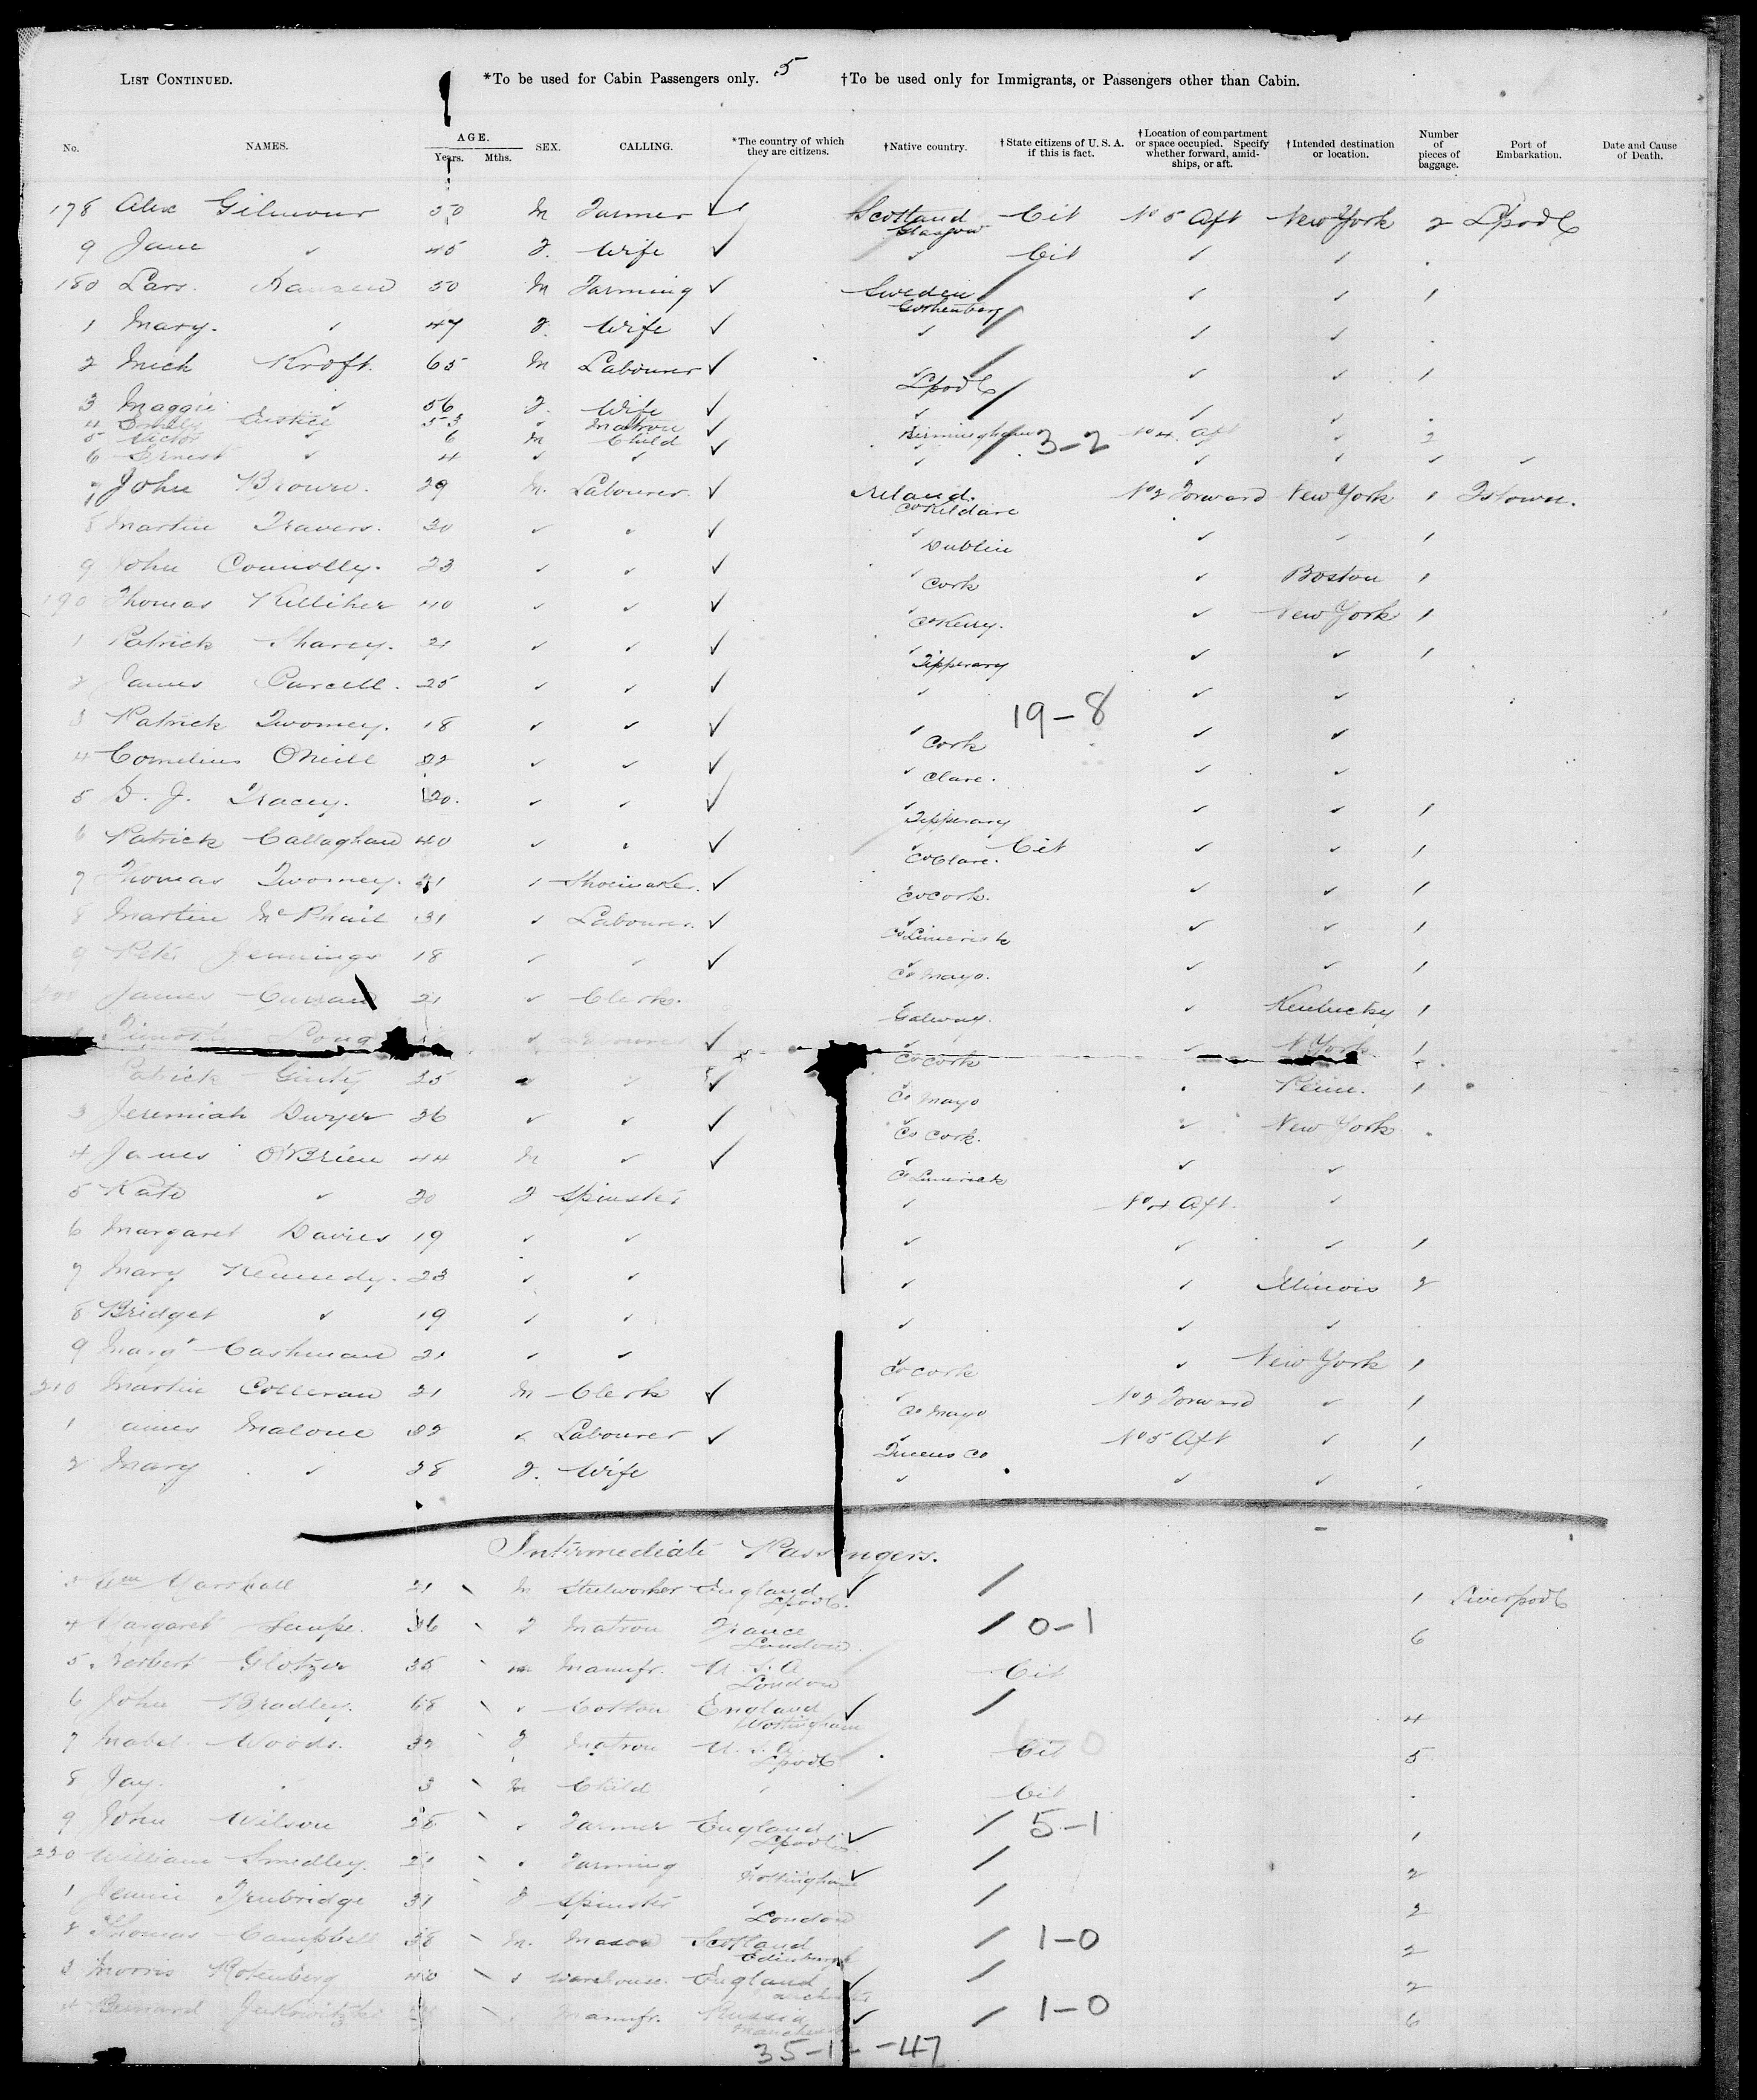 5
LIST CONTINUED. *To be used for Cabin Passengers only. †To be used only for Immigrants, or Passengers other than Cabin.
No. NAMES. AGE. Years. Mths. SEX. CALLING. *The country of which they are citizens. †Native country. †State citizens of U. S. A. if this is fact. †Location of compartment or space occupied. Specify whether forward, amidships, or aft. †Intended destination or location. Number of pieces of baggage. Port of Embarkation. Date and Cause of Death.
178 Alex Gilmour 50 M Farmer ✓ Scotland Glasgow Cit No 5 Aft New York 2 Lpool
9 Jane ✓ 45 F. Wife ✓ ✓ Cit ✓ ✓
180 Lars. Hansen 50 M Farming ✓ Sweden Gothenberg ✓ ✓ 1
1 Mary. ✓ 47 F. Wife ✓ ✓ ✓ ✓
2 Mich Kroft. 65 M Labourer ✓ Lpool ✓ ✓ 1
3 Maggie ✓ 56 F. Wife ✓ ✓ ✓ ✓
4 Emily 53 ✓ Matron ✓ Birmingham 3-2 No 4. Aft ✓ 2
5 Victor ✓ 6 M Child
6 Ernest ✓ 4 ✓ ✓ ✓ ✓ ✓ ✓ ✓ ✓
7 John Brown. 29 M. Labourer. ✓ Ireland. Co Kildare No 2 Forward New York 1 Qstown.
8 Martin Travers. 30 ✓ ✓ ✓ Dublin ✓ ✓ 1
9 John Connolly. 23 ✓ ✓ ✓ Cork ✓ Boston 1
190 Thomas Killiher 40 ✓ ✓ ✓ Co Kerry. ✓ New York 1
1 Patrick 21 ✓ ✓ ✓ Tipperary ✓ ✓ 1
2 James Purcell. 25 ✓ ✓ ✓ ✓ ✓ ✓
19-8
3 Patrick Twomey. 18 ✓ ✓ ✓ Cork ✓ ✓
4 Cornelius ONeill 22 ✓ ✓ ✓ Clare. ✓ ✓
5 D. J. Tracey. 20. ✓ ✓ ✓ Tipperary ✓ ✓ 1
6 Patrick Callaghan 40 ✓ ✓ ✓ Co Clare. Cit ✓ ✓ 1
7 Thomas Twomey. 21 ✓ Shoemaker. ✓ Co Cork. ✓ ✓ 1
8 Martin McPhail 31 ✓ Labourer. ✓ Co Limerick ✓ ✓ 1
9 Jennings 18 ✓ ✓ ✓ Co Mayo. ✓ ✓ 1
200 James Curran 21 ✓ Clerk. Galway. ✓ Kentucky 1
Labourer ✓ Co Cork ✓ N York. 1
Patrick Ginty 25 ✓ ✓ Co Mayo Penn. 1
3 Jeremiah Dwyer 26 ✓ ✓ ✓ Co Cork. ✓ New York
4 James O'Brien 44 M ✓ ✓ Co Limerick ✓ ✓
5 Kate ✓ 20 F Spinster ✓ No 4 Aft. ✓
6 Margaret Davies 19 ✓ ✓ ✓ ✓ ✓ 1
7 Mary Kennedy. 23 ✓ ✓ ✓ ✓ Illinois 2
8 Bridget ✓ 19 ✓ ✓ ✓ ✓ ✓
9 Margt Cashman 21 ✓ ✓ Co Cork ✓ New York 1
210 Martin Colleran 21 M Clerk ✓ Co Mayo No 2 Forward ✓ 1
1 ames Malone 32 ✓ Labourer ✓ Queens Co No 5 Aft ✓ 1
2 Mary ✓ 28 F. Wife ✓ ✓ ✓
Intermediate Passengers.
3 Wm Marshall 21 M Steelworker England Lpool. ✓ 1 Liverpool
4 Margaret 36 F Matron France London. 0-1 6
5 Glotzer 35 m Manufr. U.S.A London Cit
6 John Bradley. 68 ✓ Cotton England Nottingham ✓ 4
7 Mabel Woods. 32 F Matron U.S.A. Lpool Cit 5
8 Jay. 3 M Child Cit
9 John Wilson 28 ✓ Farmer England Lpool ✓ 5-1 1
220 William Smedley. 21 Farming Nottingham ✓ 2
1 Jennie Trubridge 31 F Spinster London 2
2 Thomas Campbell 38 M. Mason Scotland Edinburgh 1-0 2
3 Morris Rotenberg 40 ✓ Warehouse. England ✓ 2
4 Bernard Manufr. Russia Manchester ✓ 1-0 6
35-1 -47